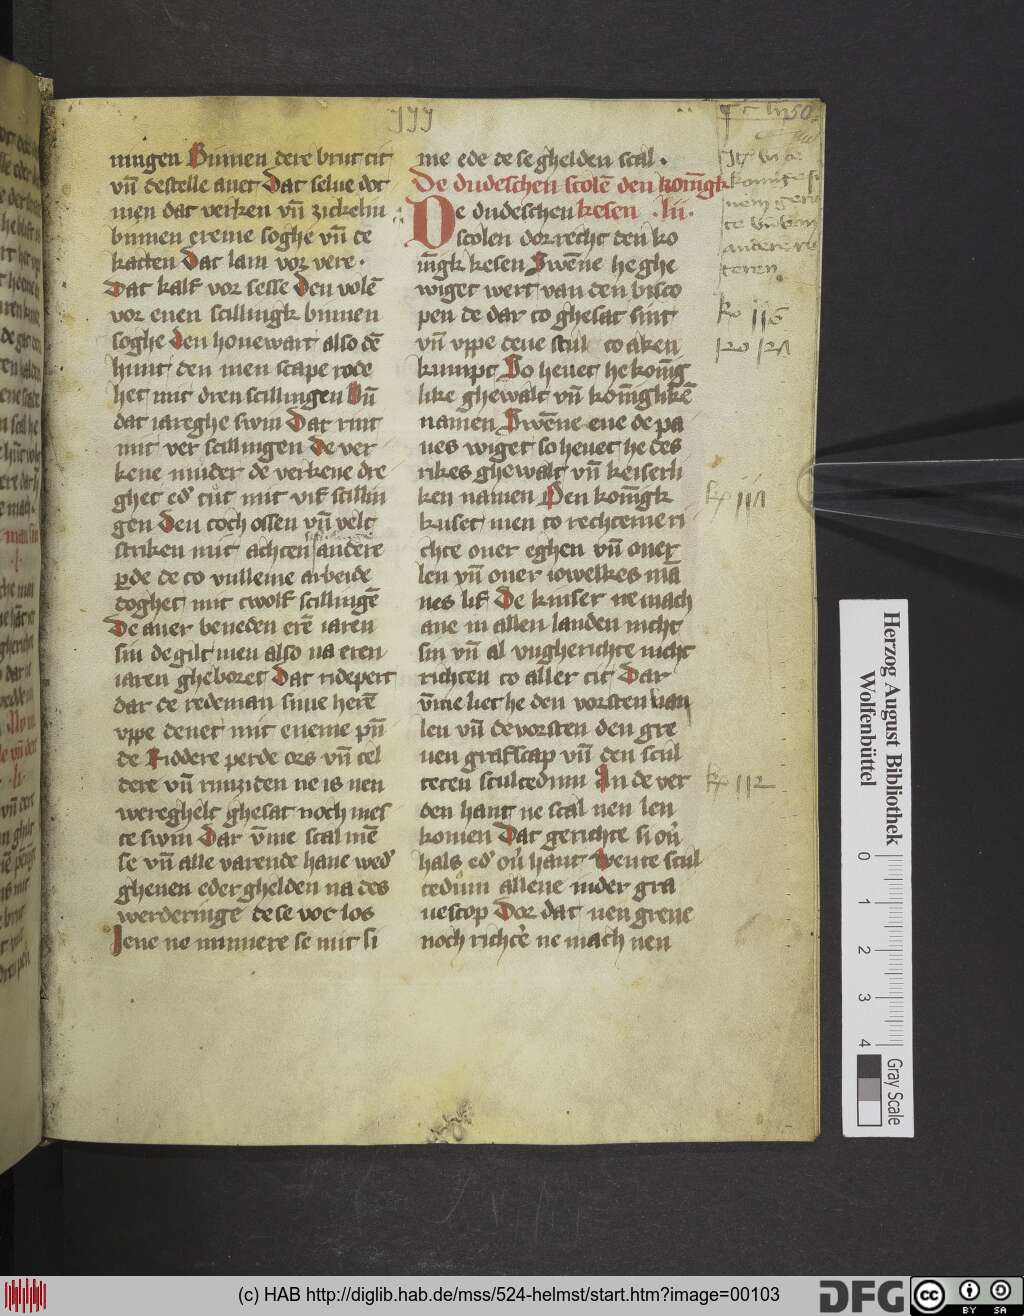 III
ningen Binnen dere brut tit
vn̄ destelle auer Dat selue dot
men dat verken vn̄ zickelin
binnen ereme soghe vn̄ de
katten Dat lam vor vere ·
Dat kalf vor sesse Den volē
vor enen scillingk binnen
soghe Den houewart also dē
hunt den men scape rode
het mit dren scillingen Vn̄
dat iareghe swin Dat rint
mit ver scillingen De ver
kene muder de verkene dre
ghet ed' tut mit vif scillin
gen Den toch ossen vn̄ velt
striken mit achten andere
perde de to vulleme arbeide
doghet mit twolf scillingē
De auer beneden erē iaren
sin de gilt men also na eren
iaren gheboret Dat ridepert
dar de redeman sime herē
vppe denet mit eneme pūn
de Riddere perde ors vn̄ tel
dere vn̄ runziden ne is nen
wereghelt ghesat noch mes
te swin Dar v̄me scal mē
se vn̄ alle varende haue wed'
gheuen eder ghelden na des
werderinge de se vor los
Jene ne minnere se mit si
me ede de se ghelden scal ·
De dudeschen scolē den konīgk
De dudeschen kesen · lii ·
scolen dor recht den ko
nīgk kesen Swēne he ghe
wiget wert van den bisco
pen de dar to ghesat sint
vn̄ vppe dene stul to aken
kumpt So heuet he konīg
like ghewalt vn̄ konīghlikē
namen Swēne ene de pa
ues wiget so heuet he des
rikes ghewalt vn̄ keiserli
ken namen Den konīgk
kuset men to rechteme ri
chte ouer eghen vn̄ ouer
len vn̄ ouer iowelkes mā
nes lif De keiser ne mach
aue in allen landen nicht
sin vn̄ al vngherichte nicht
richten to aller tit Dar
v̄me liet he den vorsten van
len vn̄ de vorsten den gre
uen grafscap vn̄ den scul
teten scultedum An de ver
den hant ne scal nen len
komen Dat gerichte si ou'
hals ed' ou' hant Wente scul
tedum allene nider gra
uescop Dor dat nen greue
noch richtē ne mach nen
Herzog August Bibliothek
Wolfenbüttel
0 1 2 3 4
Gray Scale
(c) HAB http://diglib.hab.de/mss/524-helmst/start.htm?image=00103
DFG
cc BY SA